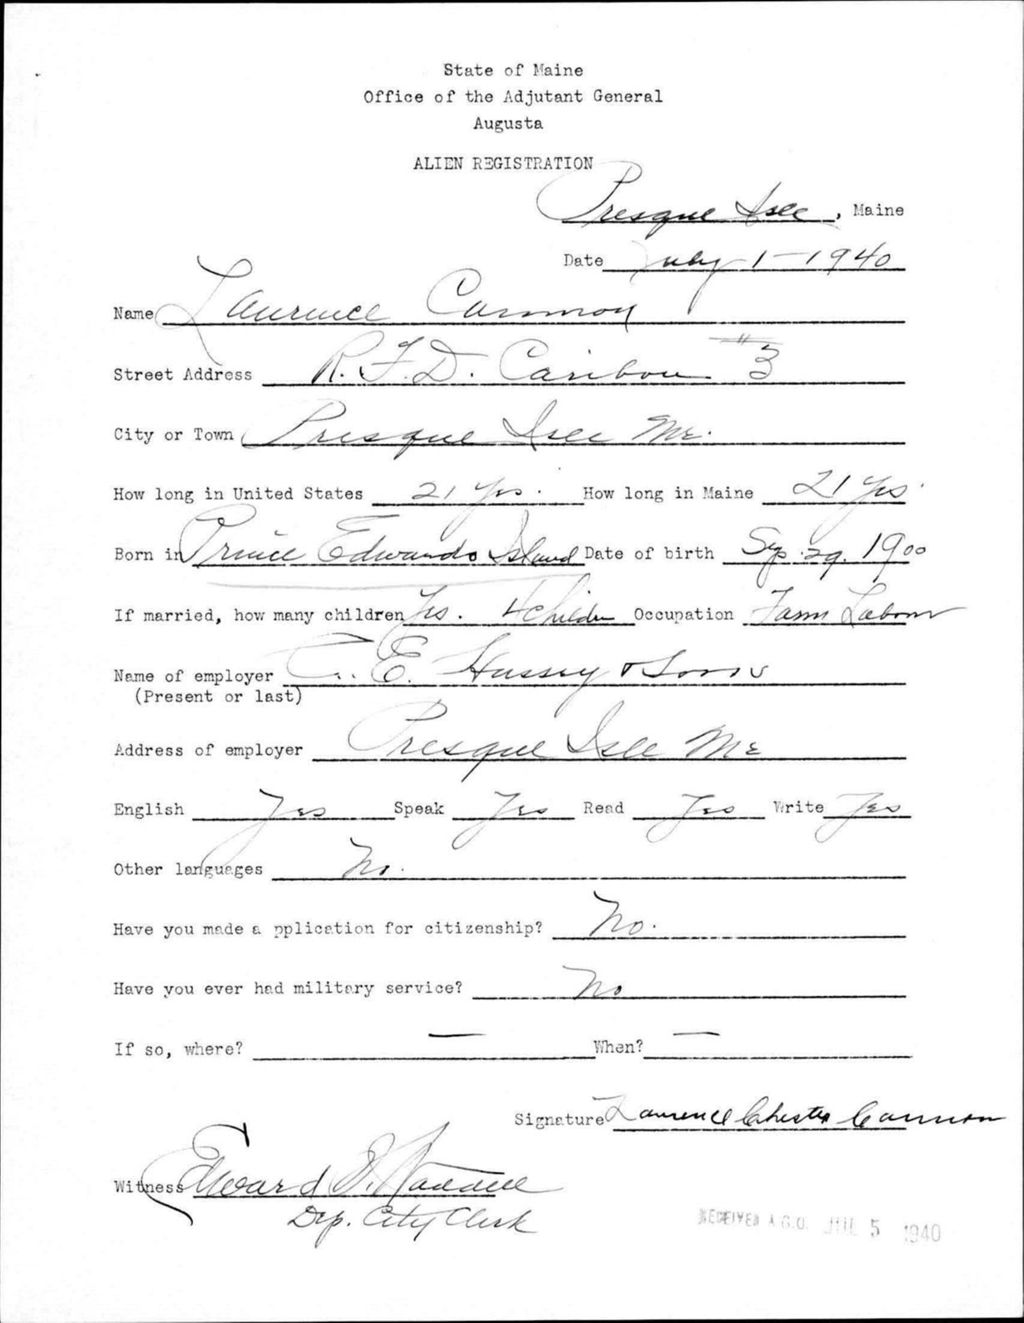 State of Maine
Office of the Adjutant General
Augusta
ALIEN REGISTRATION
Presque Isle, Maine
Date July 1-1940
Name Laurence Cannon
Street Address R.F.D. Caribou #3
City or Town Presque Isle Me.
How long in United States 21 Yrs. How long in Maine 21 Yrs.
Born in Prince Edwards Island Date of birth Sep. 29. 1900
If married, how many children Yes. 4 Children Occupation Farm Labor
Name of employer E. Hussey & Sons
(Present or last)
Address of employer Presque Isle Me
English Yes Speak Yes Read Yes Write Yes
Other languages No.
Have you made a pplication for citizenship? No.
Have you ever had military service? No
If so, where? — When? —
Signature Laurence Chester Cannon
Witness Edward
Dep. City Clerk
RECEIVED A.G.O. JUL 5 1940